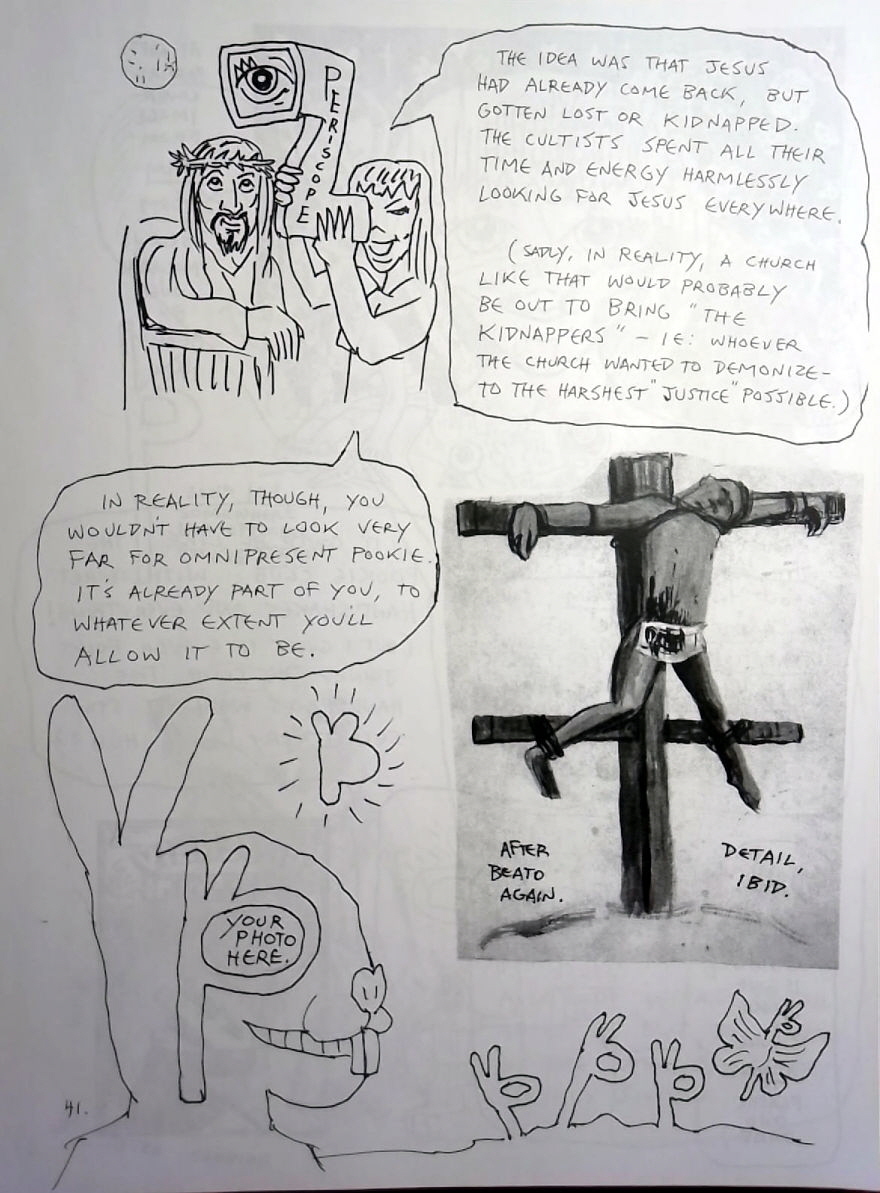 PERISCOPE
THE IDEA WAS THAT JESUS
HAD ALREADY COME BACK, BUT
GOTTEN LOST OR KIDNAPPED.
THE CULTISTS SPENT ALL THEIR
TIME AND ENERGY HARMLESSLY
LOOKING FOR JESUS EVERYWHERE.
(SADLY, IN REALITY, A CHURCH
LIKE THAT WOULD PROBABLY
BE OUT TO BRING "THE
KIDNAPPERS" – IE: WHOEVER
THE CHURCH WANTED TO DEMONIZE –
TO THE HARSHEST "JUSTICE" POSSIBLE.)
IN REALITY, THOUGH, YOU
WOULDN'T HAVE TO LOOK VERY
FAR FOR OMNIPRESENT POOKIE.
IT'S ALREADY PART OF YOU, TO
WHATEVER EXTENT YOU'LL
ALLOW IT TO BE.
AFTER
BEATO
AGAIN.
DETAIL,
IBID.
YOUR
PHOTO
HERE.
41.